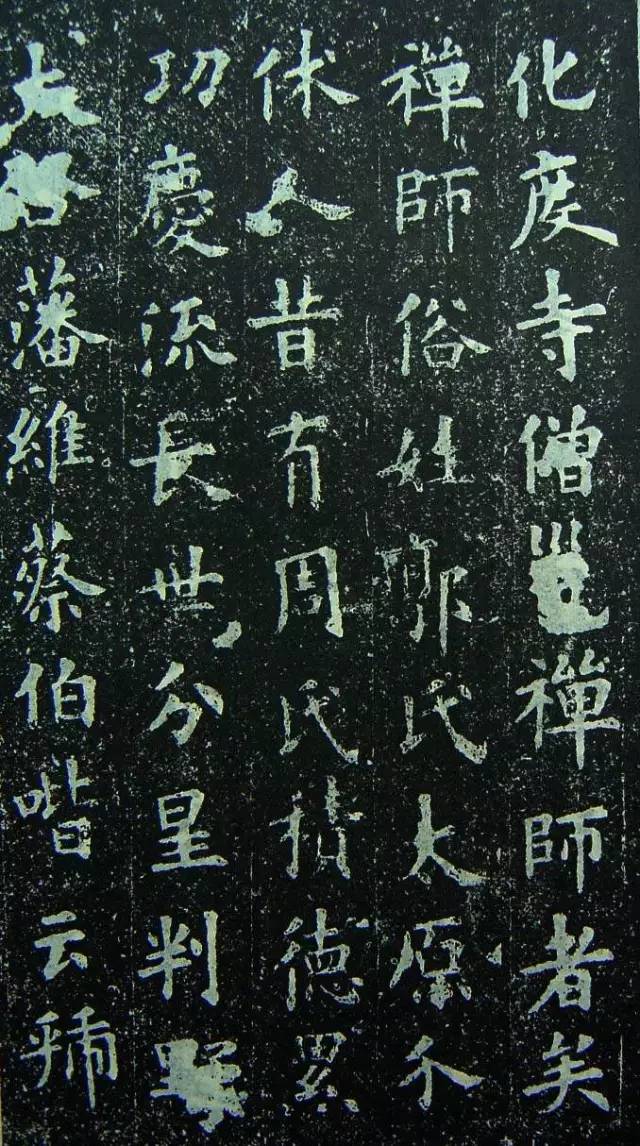 化度寺僧邕禪師者矣
禪師俗姓郭氏太原介
休人昔有周氏積德累
功慶流長世分星判野
藩維蔡伯喈云虢